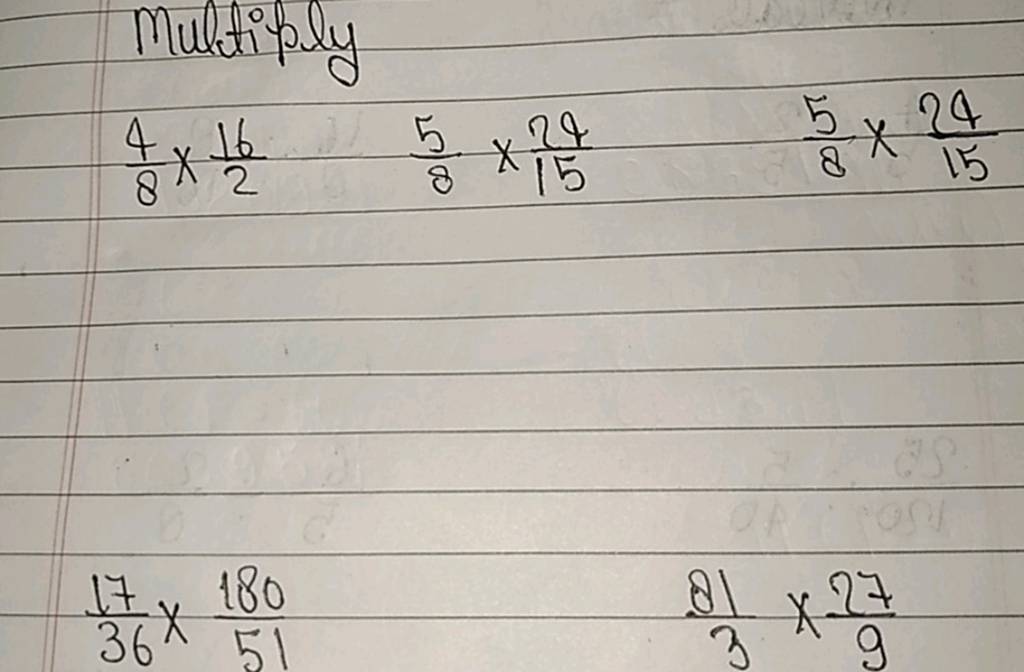 Multiply
4/8 × 16/2 5/8 × 24/15 5/8 × 24/15
17/36 × 180/51 81/3 × 27/9